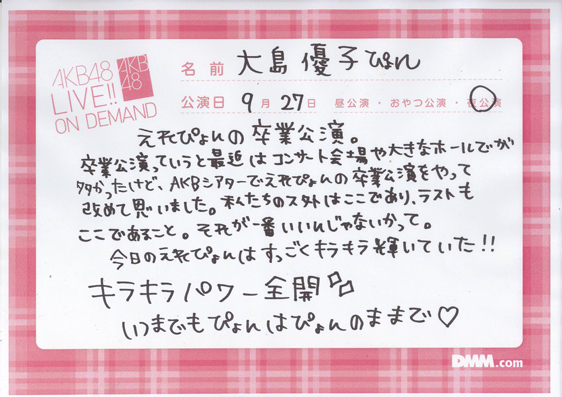 AKB48
LIVE!!
ON DEMAND
AKB
48
名前 大島優子ぴょん
公演日 9月27日 昼公演・おやつ公演・夜公演
えれぴょんの卒業公演。
卒業公演っていうと最近はコンサート会場や大きなホールでが
多かったけど、AKBシアターでえれぴょんの卒業公演をやって
改めて思いました。私たちのスタートはここであり、ラストも
ここであること。それが一番いいんじゃないかって。
今日のえれぴょんはすっごくキラキラ輝いていた!!
キラキラパワー全開
いつまでもぴょんはぴょんのままで♡
DMM.com